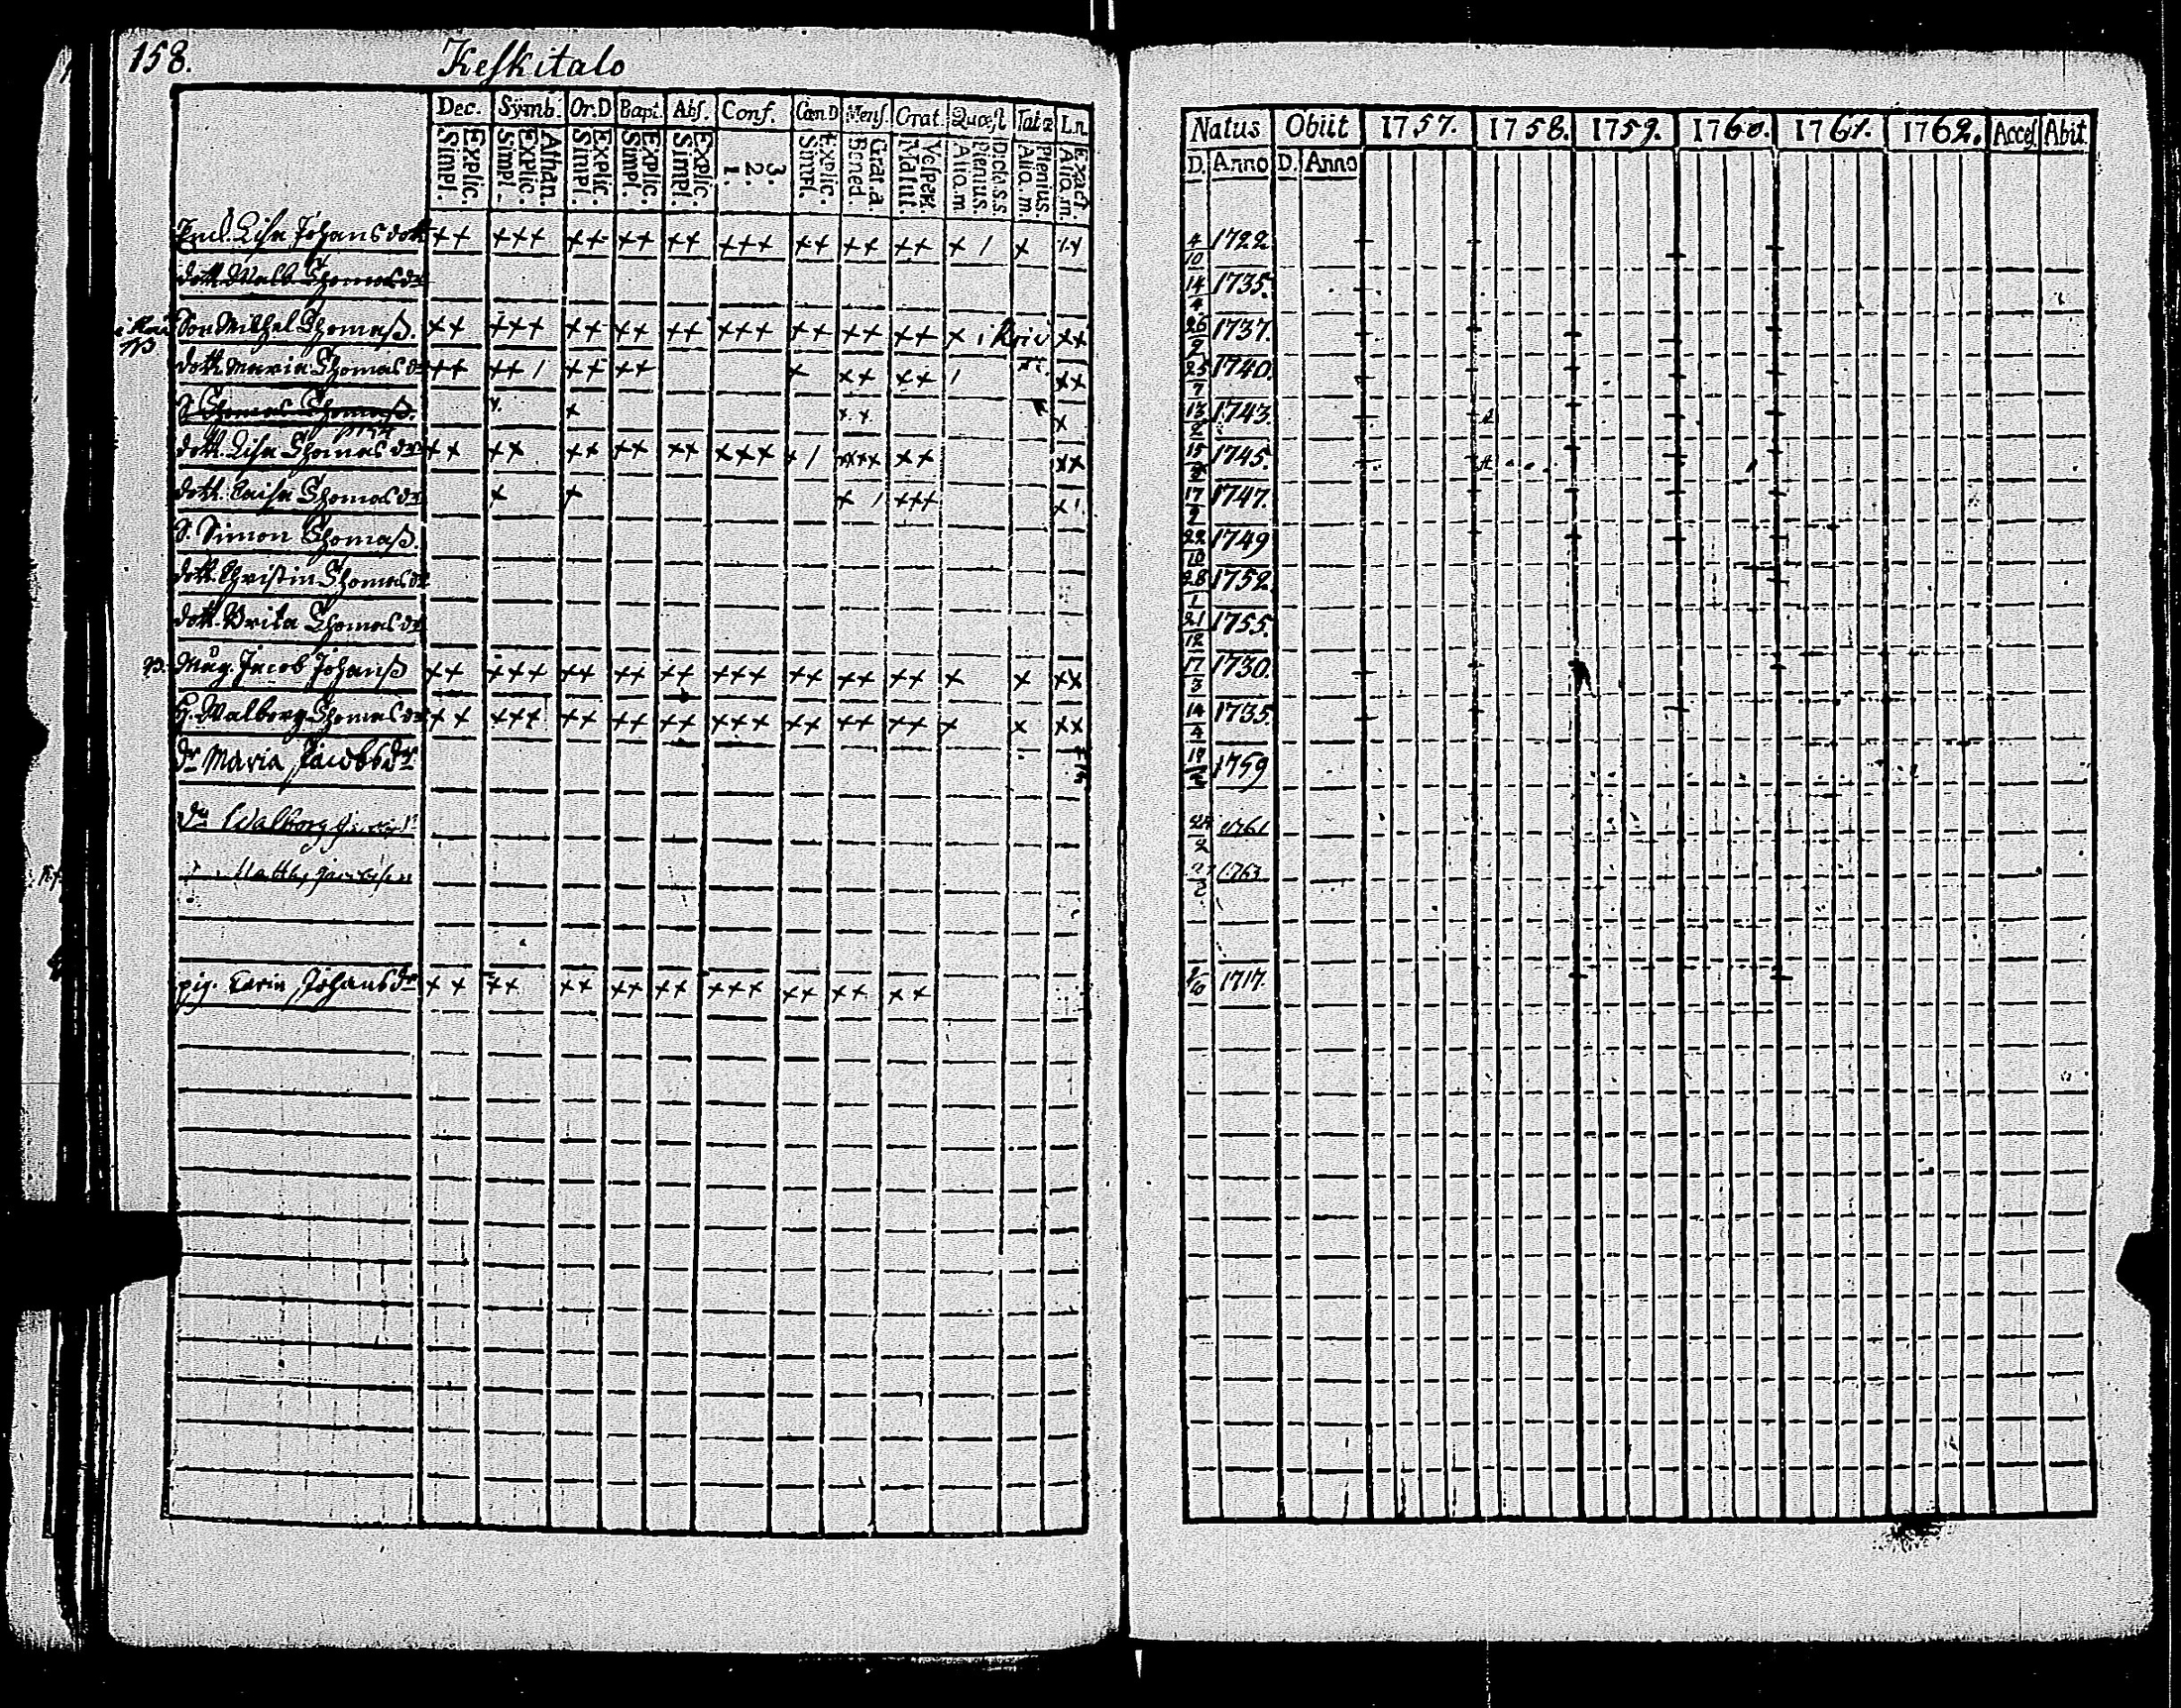 158.
Keskitalo
Dec. Symb. Or.D Bapt. Abs. Conf. Cœn.D Mens. Orat. Quæst. Tabæ Ln.
Explic. Simpl. Athan. Explic. Simpl. Explic. Simpl. Explic. Simpl. Explic. Simpl. 3. 2. 1. Explic. Simpl. Grat.a. Bened. Vesper. Matut. Dicta.s.s. Plenius. Aliq.m. Plenius. Aliq.m. Exact. Aliq.m.
Natus Obiit 1757. 1758. 1759. 1760. 1761. 1762. Acces. Abit.
D. Anno D. Anno
Lisa Johansdott ++ +++ ++ ++ ++ +++ ++ ++ ++ + / + ++ 4/10 1722
dott. Walb. Thomasdr 14/4 1735.
Son Michel Thomaß. ++ +++ ++ ++ ++ +++ ++ ++ ++ + ++ 26/9 1737.
dott. Maria Thomasdr ++ ++ / ++ ++ + ++ ++ / ++ 25/7 1740.
S. Thomas Thomaß. + + ++ + 13/2 1743.
dott. Lisa Thomasdr ++ ++ ++ ++ ++ +++ + / ++++ ++ ++ 15 1745.
dott. Caisa Thomasdr + + + / +++ + / 17/2 1747.
S. Simon Thomaß. 22/10 1749
dott. Christin Thomasdr 28/1 1752
dott. Brita Thomasdr 21/12 1755.
Måg. Jacob Johanß ++ +++ ++ ++ ++ +++ ++ ++ ++ + + ++ 17/3 1730.
H. Walborg Thomasdr ++ +++ ++ ++ ++ +++ ++ ++ ++ + + ++ 14/4 1735
dr Maria Jacobsdr 1759
dr Walborg 24/2 1761
Matts Jacobsson 27/2 1763
pig. Carin Johansdr ++ ++ ++ ++ ++ +++ ++ ++ ++ 1717.